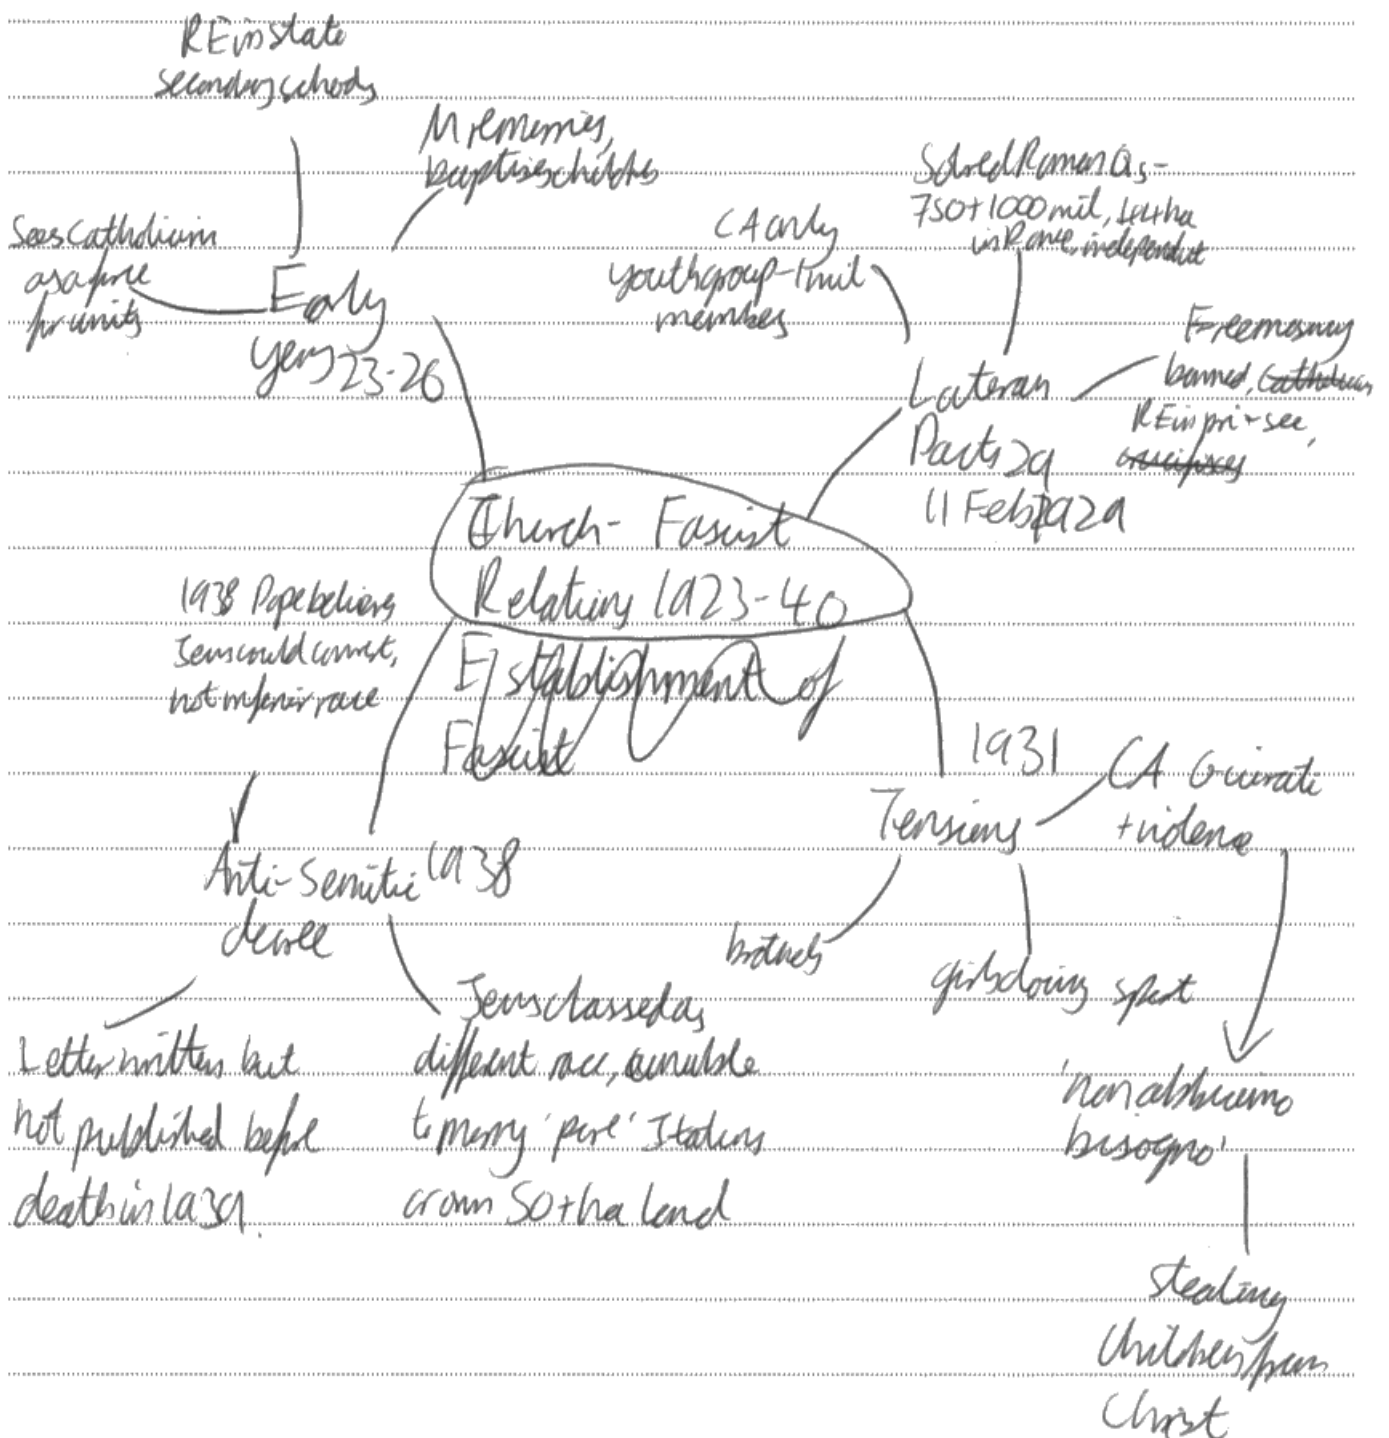 RE in state
secondary schools
M remarries,
baptises children
Sees Catholicism
as a force
for unity
Early
years 23-26
CA only
youth group - 1 mil
members
Solved Roman Qs -
750 + 1000 mil, 44 ha
in Rome, independent
Lateran
Pacts 29
11 Feb 1929
Freemasonry
banned, Catholicism
RE in pri + sec,
crucifixes
Church - Fascist
Relations 1923-40
Establishment of
Fascist
1938 Pope believes
Jews could convert,
not inferior race
Anti-Semitic 1938
decree
Letter written but
not published before
death in 1939.
Jews classed as
different race, unable
to marry 'pure' Italians
or own 50+ ha land
1931
Tensions
CA Giurati
+ violence
brothels
girls doing sport
'non abbiamo
bisogno'
stealing
children from
Christ